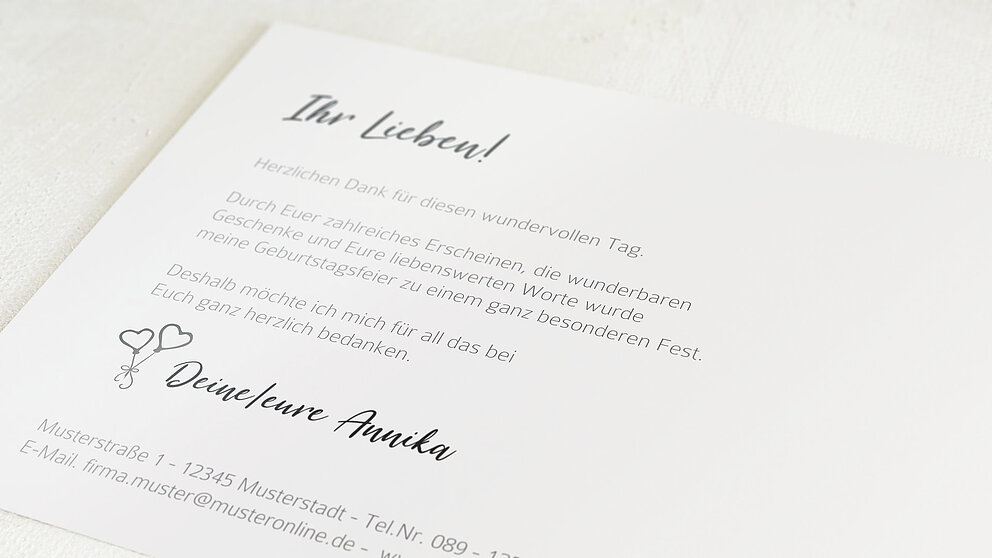 Ihr Lieben!
Herzlichen Dank für diesen wundervollen Tag.
Durch Euer zahlreiches Erscheinen, die wunderbaren
Geschenke und Eure liebenswerten Worte wurde
meine Geburtstagsfeier zu einem ganz besonderen Fest.
Deshalb möchte ich mich für all das bei
Euch ganz herzlich bedanken.
Deine/eure Annika
Musterstraße 1 - 12345 Musterstadt - Tel.Nr. 089 -
E-Mail. firma.muster@musteronline.de -